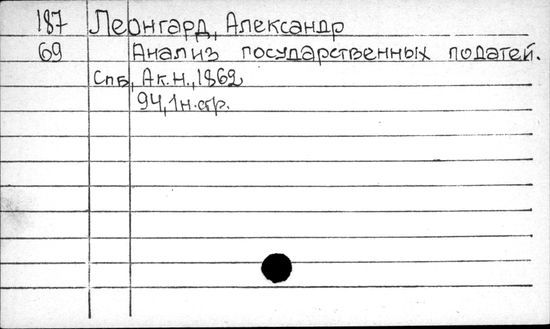 187 Леонгард, Александр
69 Анализ государственных податей.
Спб, Ак.н., 1862
94, 1н.стр.